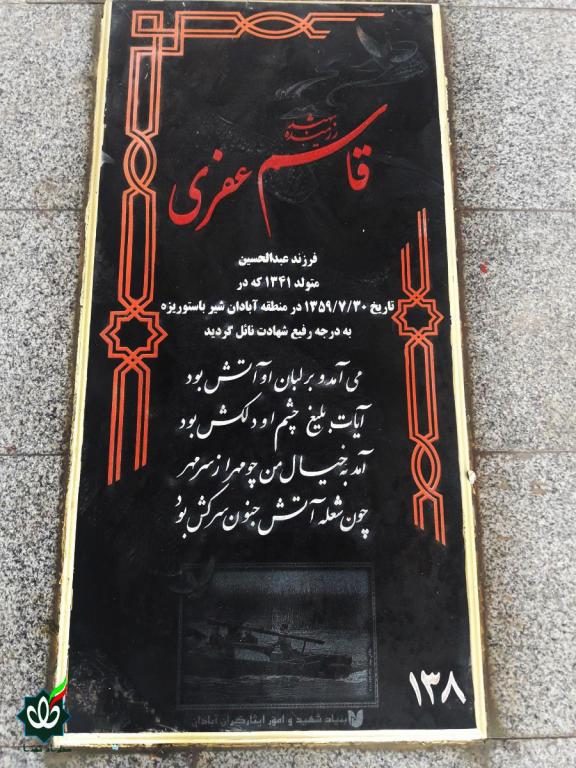 شهید
رزمنده
قاسم عفری
فرزند عبدالحسین
متولد ۱۳۴۱ که در
تاریخ ۱۳۵۹/۷/۳۰ در منطقه آبادان شیر باستوریزه
به درجه رفیع شهادت نائل گردید
می آمد و بر لبان او آتش بود
آیات بلیغ چشم او دلکش بود
آمد به خیال من چو مهر از سر مهر
چون شعله آتش جنون سرکش بود
بنیاد شهید و امور ایثارگران آبادان
۱۳۸